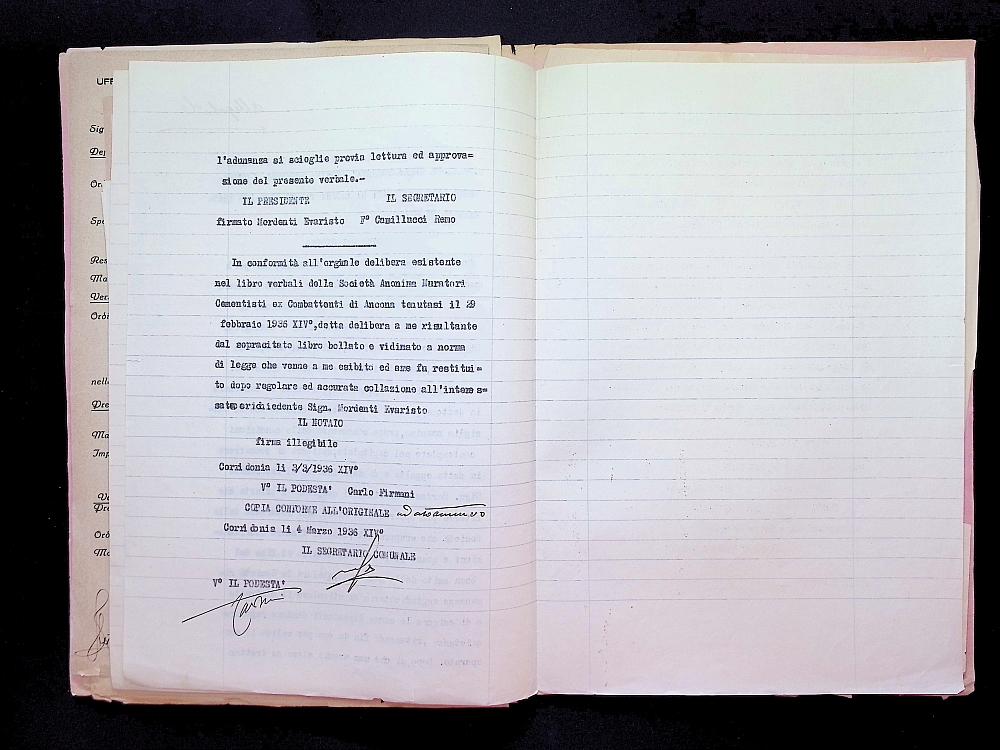 UFF
Sig
Dep
Or
Spe
Res
Ma
Ver
Orbi
nell
Pre
Ma
Imp
l'adunanza si scioglie previa lettura ed approva=
zione del presente verbale.-
IL PRESIDENTE IL SEGRETARIO
firmato Mordenti Evaristo F° Camillucci Remo
In conformità all'orginle delibera esistente
nel libro verbali della Società Anonima Muratori
Cementisti ex Combattenti di Ancona tenutasi il 29
febbraio 1936 XIV°,detta delibera a me risultante
dal sopracitato libro bollato e vidinato a norma
di legge che venne a me esibito ed ame fu restitui=
to dopo regolare ed accurata collazione all'interes=
sato erichiedente Sign. Mordenti Evaristo
IL NOTAIO
firma illegibile
Corridonia li 3/3/1936 XIV°
V° IL PODESTA' Carlo Firmani
COPIA CONFORME ALL'ORIGINALE
Corridonia li 4 Marzo 1936 XIV°
IL SEGRETARIO COMUNALE
V° IL PODESTA'